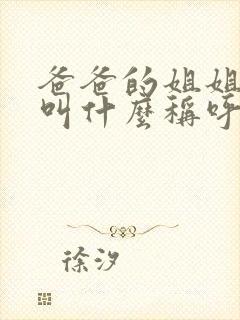 爸爸的姐姐
叫什麼稱呼
徐汐